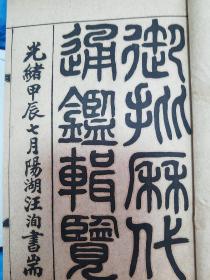 御批歷代
通鑑輯覽
光緒甲辰七月陽湖汪洵書耑